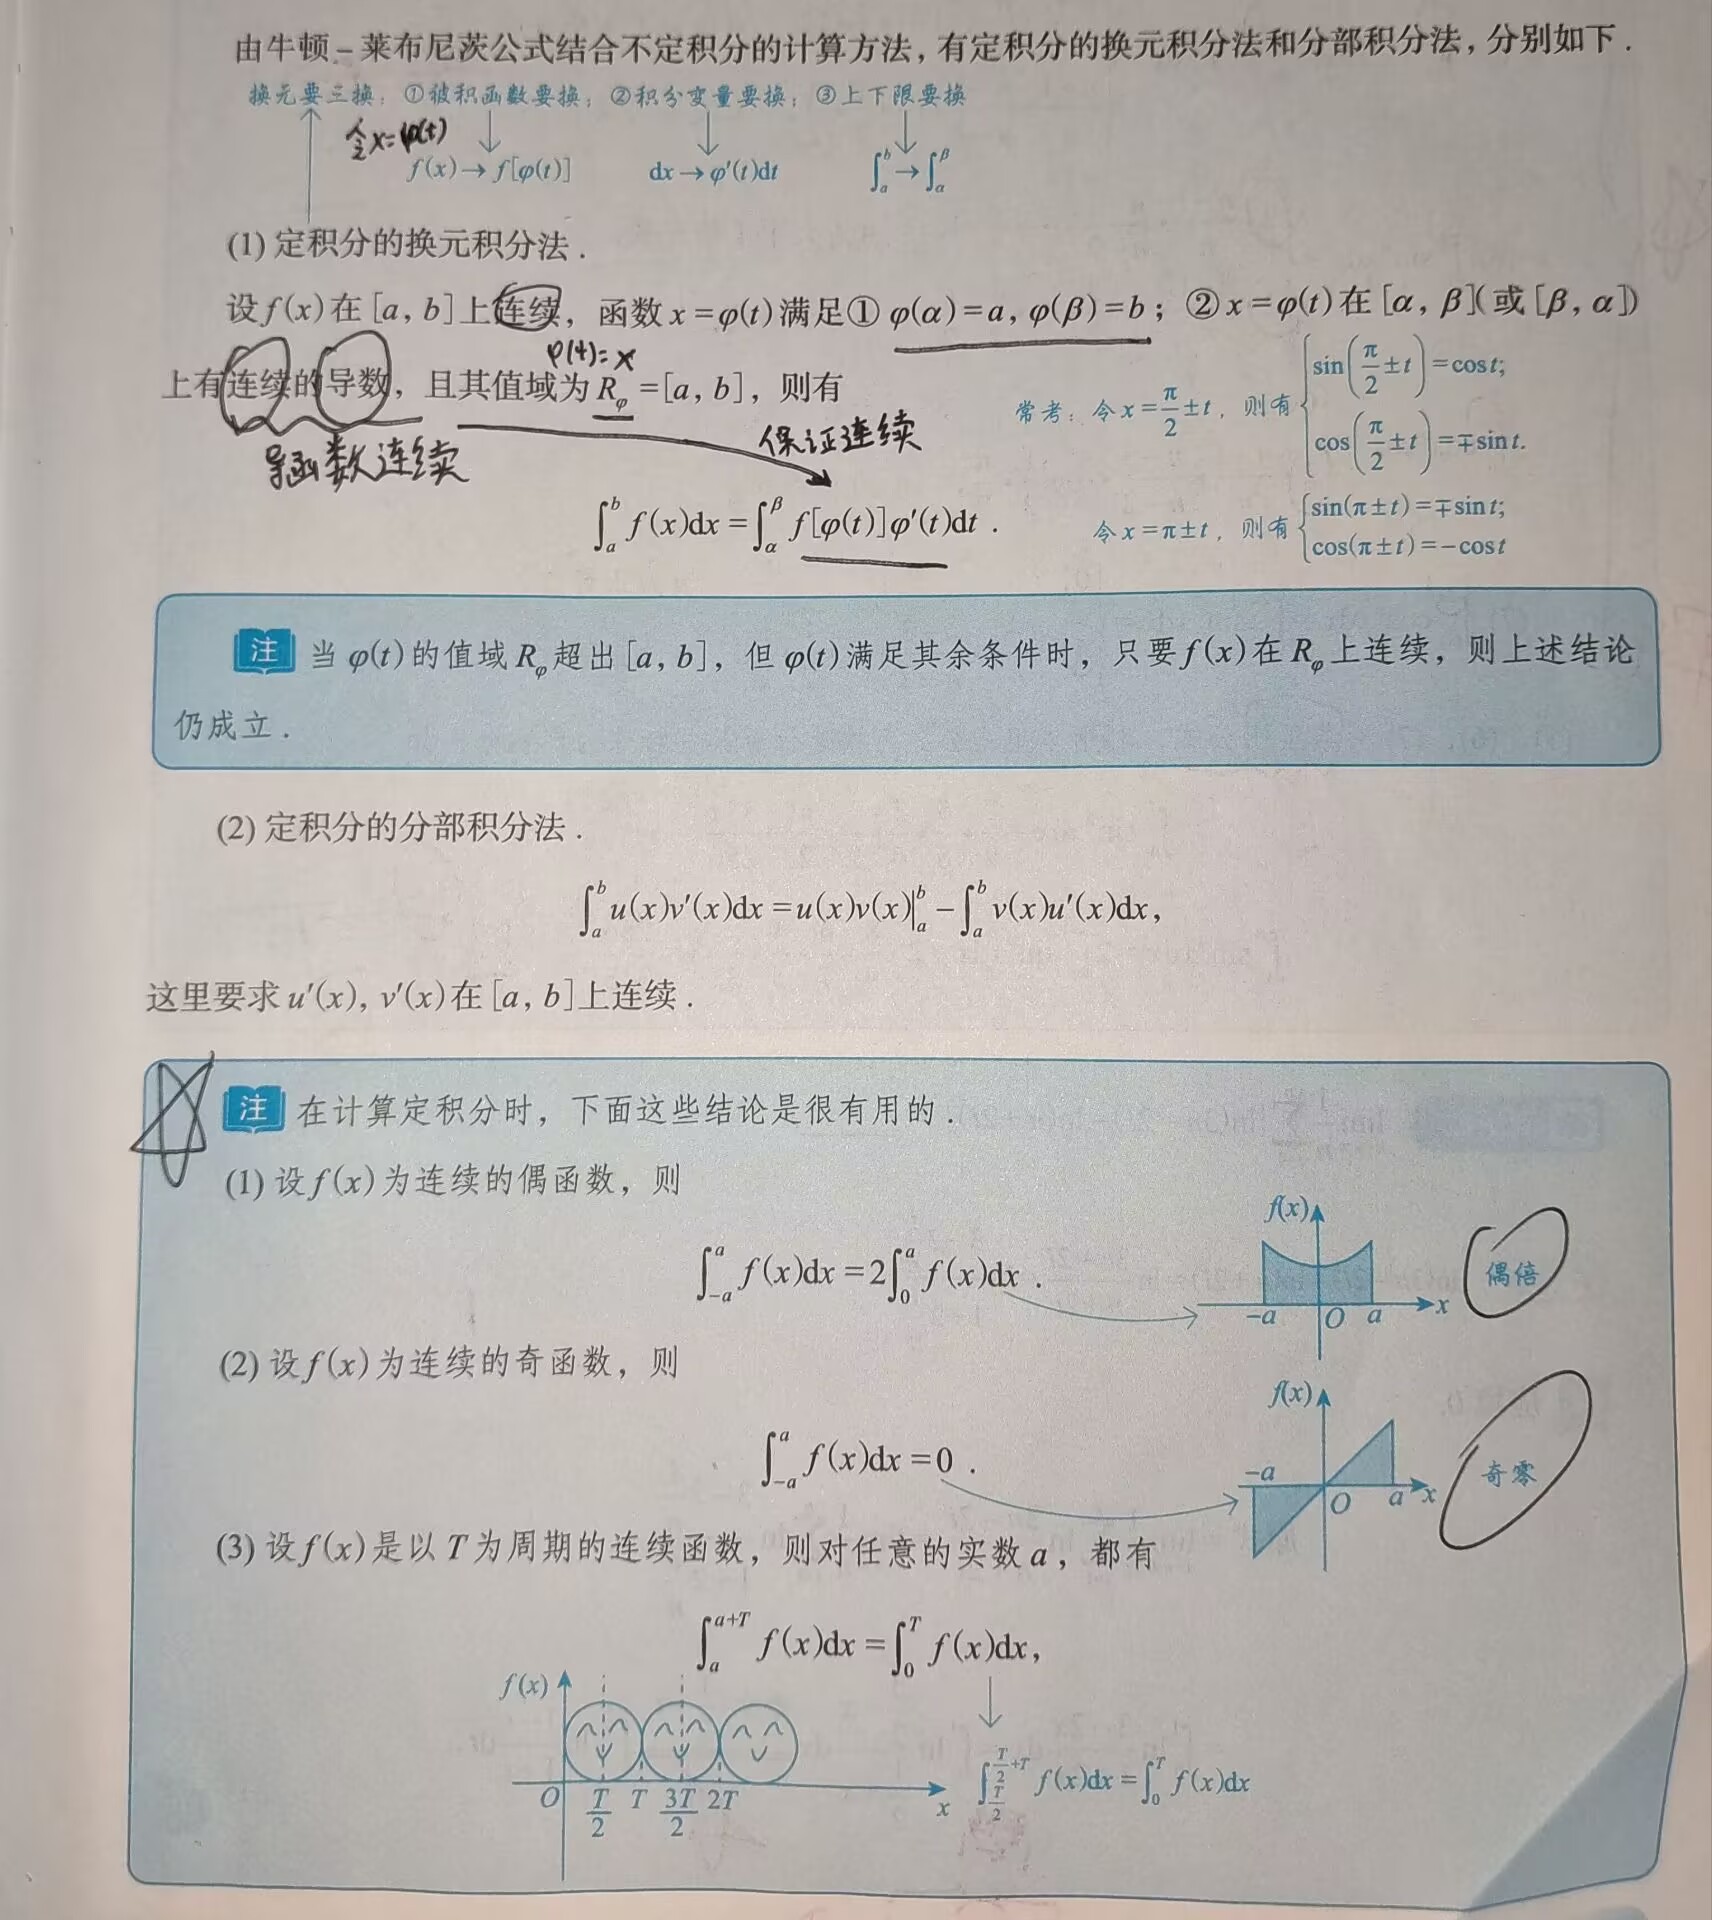 由牛顿-莱布尼茨公式结合不定积分的计算方法，有定积分的换元积分法和分部积分法，分别如下．
换元要三换：①被积函数要换；②积分变量要换；③上下限要换
令x=φ(t)
f(x)→f[φ(t)] dx→φ′(t)dt ∫_a^b→∫_α^β
(1) 定积分的换元积分法．
设f(x)在[a, b]上连续，函数x=φ(t)满足①φ(α)=a, φ(β)=b；②x=φ(t)在[α, β](或[β, α])
φ(t)=x
上有连续的导数，且其值域为R_φ=[a, b]，则有
常考：令x=π/2±t，则有{sin(π/2±t)=cost; cos(π/2±t)=∓sint.
导函数连续 保证连续
∫_a^b f(x)dx=∫_α^β f[φ(t)]φ′(t)dt．
令x=π±t，则有{sin(π±t)=∓sint; cos(π±t)=-cost
注 当φ(t)的值域R_φ超出[a, b]，但φ(t)满足其余条件时，只要f(x)在R_φ上连续，则上述结论
仍成立．
(2) 定积分的分部积分法．
∫_a^b u(x)v′(x)dx=u(x)v(x)|_a^b-∫_a^b v(x)u′(x)dx,
这里要求u′(x), v′(x)在[a, b]上连续．
注 在计算定积分时，下面这些结论是很有用的．
(1) 设f(x)为连续的偶函数，则
∫_{-a}^a f(x)dx=2∫_0^a f(x)dx．
f(x) -a O a x 偶倍
(2) 设f(x)为连续的奇函数，则
∫_{-a}^a f(x)dx=0．
f(x) -a O a x 奇零
(3) 设f(x)是以T为周期的连续函数，则对任意的实数a，都有
∫_a^{a+T} f(x)dx=∫_0^T f(x)dx,
f(x)
O T/2 T 3T/2 2T x
∫_{T/2}^{T/2+T} f(x)dx=∫_0^T f(x)dx